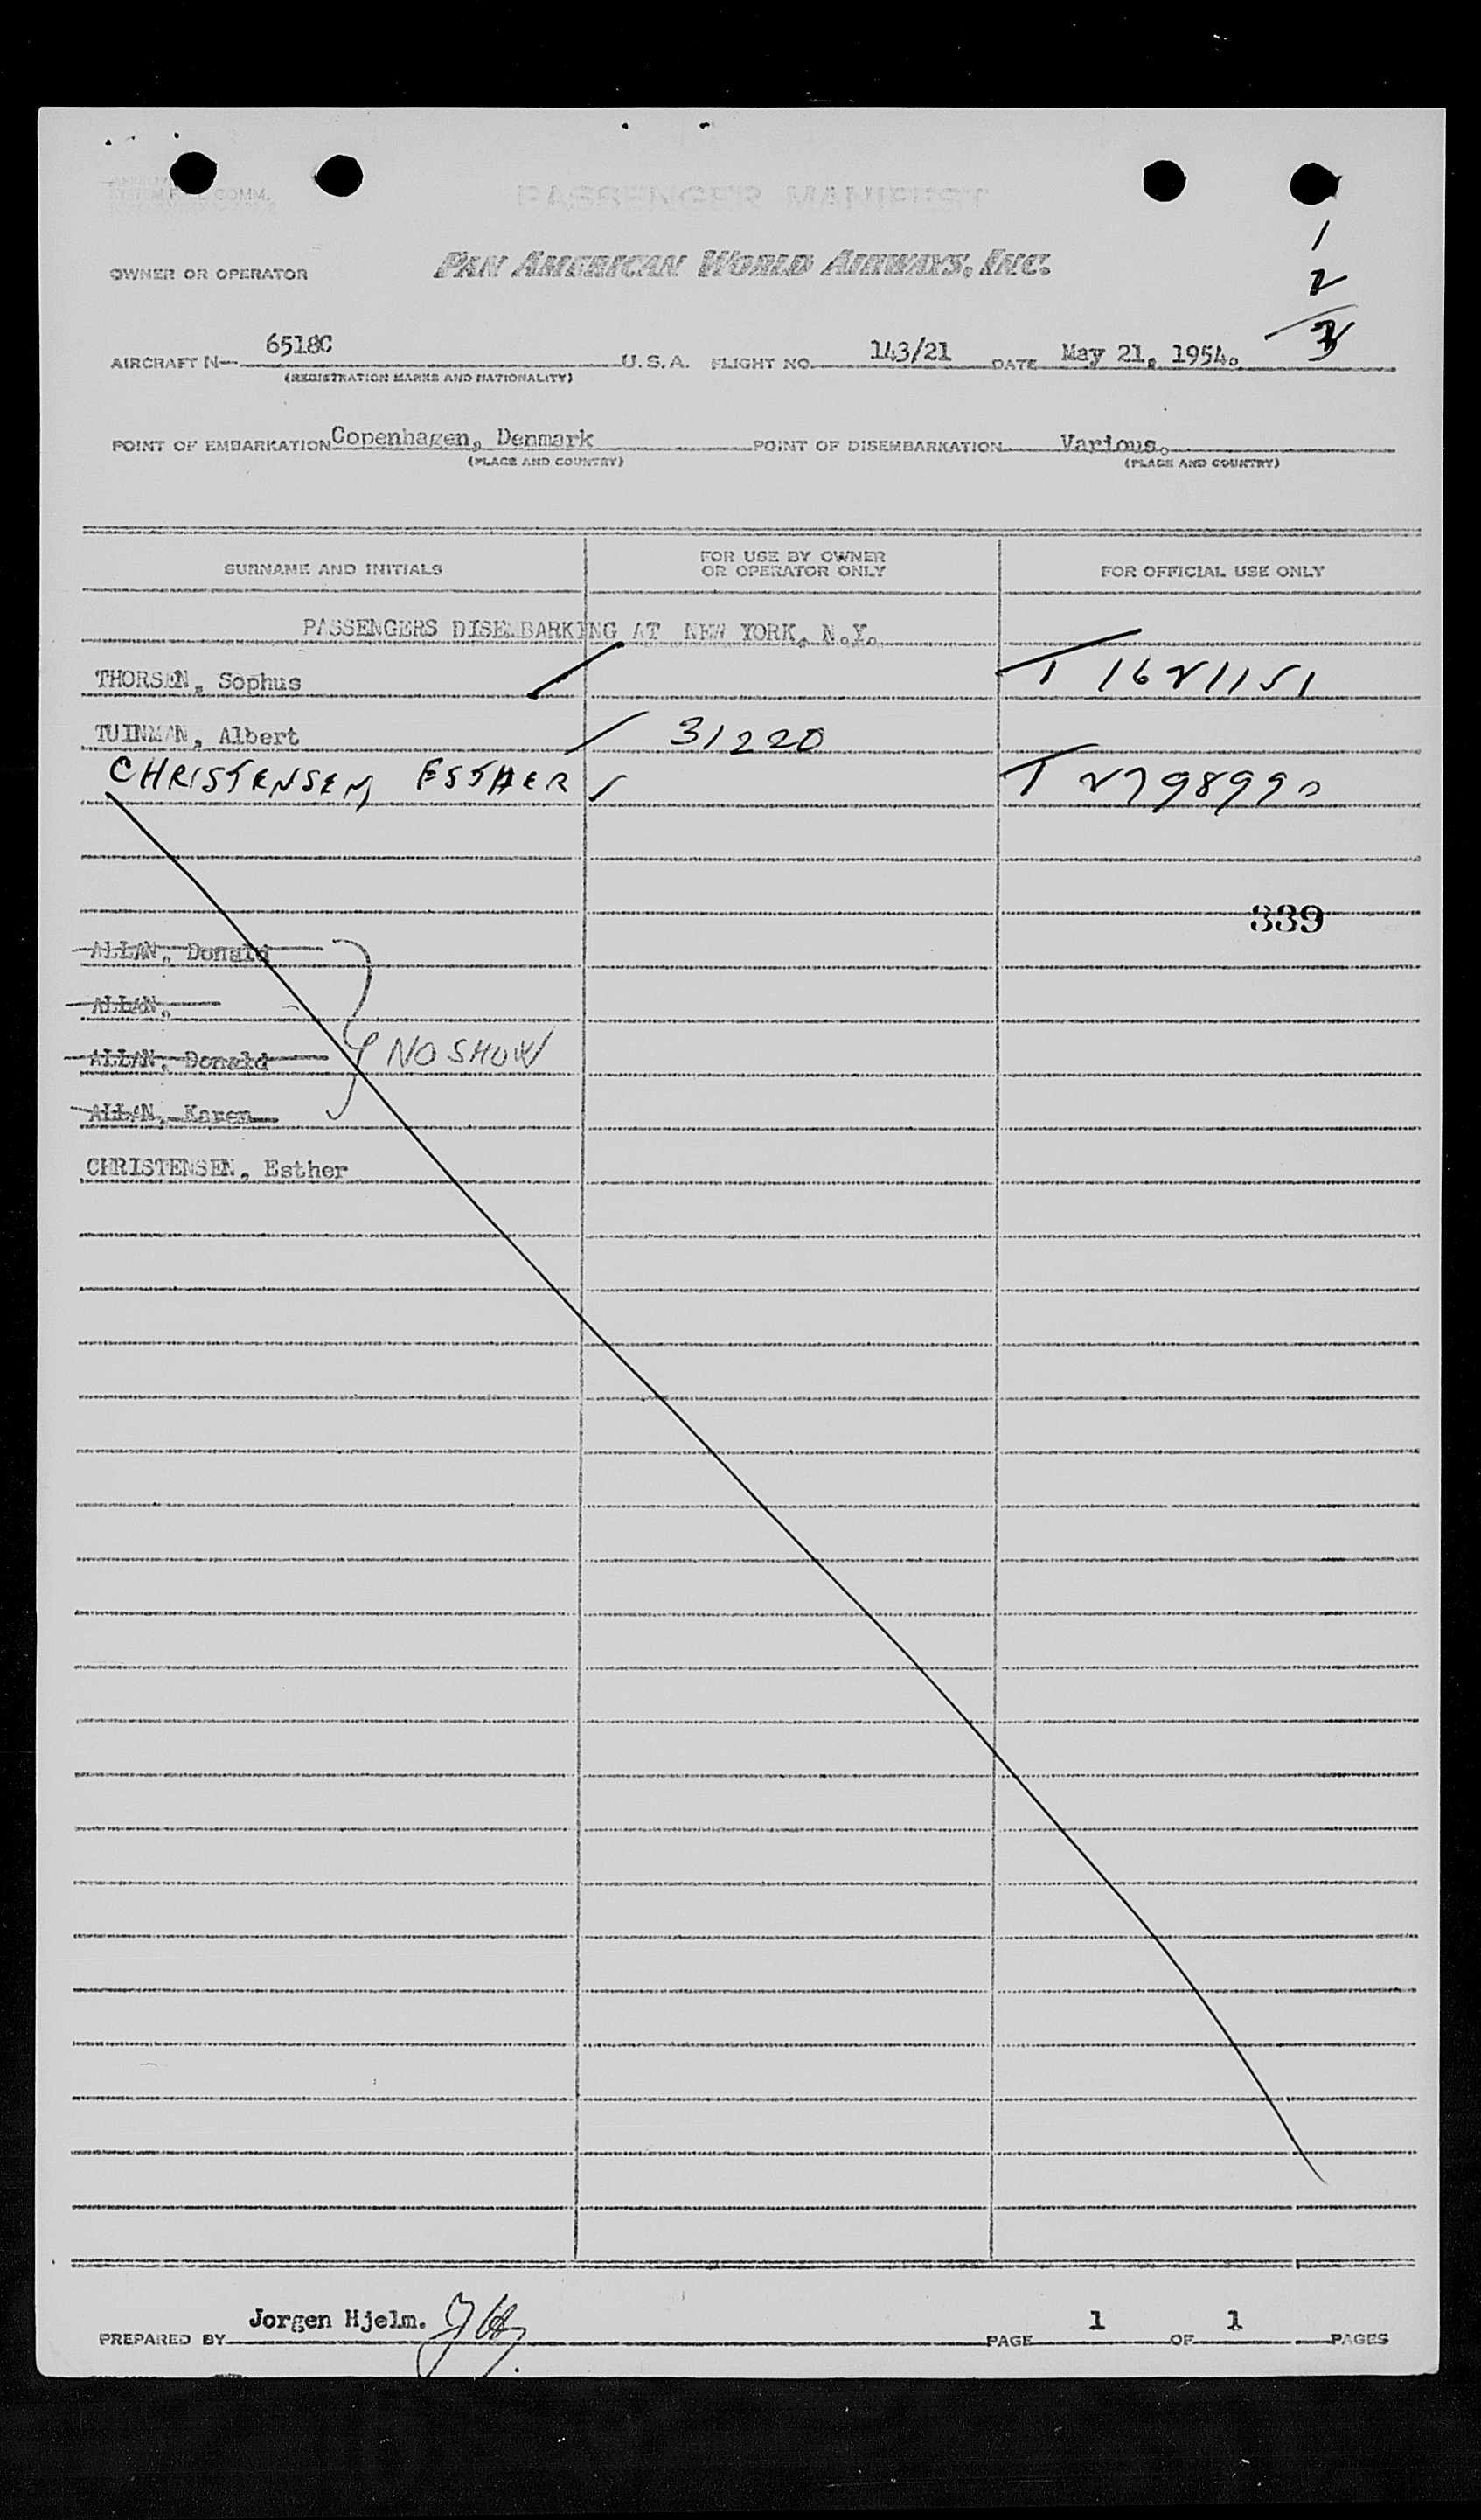 PASSENGER MANIFEST
COMM.
1
OWNER OR OPERATOR PAN AMERICAN WORLD AIRWAYS, INC.
2
3
AIRCRAFT N— 6518C U.S.A. FLIGHT NO. 143/21 DATE May 21, 1954.
(REGISTRATION MARKS AND NATIONALITY)
POINT OF EMBARKATION Copenhagen, Denmark POINT OF DISEMBARKATION Various.
(PLACE AND COUNTRY) (PLACE AND COUNTRY)
SURNAME AND INITIALS FOR USE BY OWNER OR OPERATOR ONLY FOR OFFICIAL USE ONLY
PASSENGERS DISEMBARKING AT NEW YORK, N.Y.
THORSEN, Sophus T 1621151
TUINMAN, Albert 31220
CHRISTENSEN ESTHER T 2798990
339
ALLAN, Donald
ALLAN,
ALLAN, Donald NO SHOW
ALLAN, Karen
CHRISTENSEN, Esther
PREPARED BY Jorgen Hjelm. PAGE 1 OF 1 PAGES